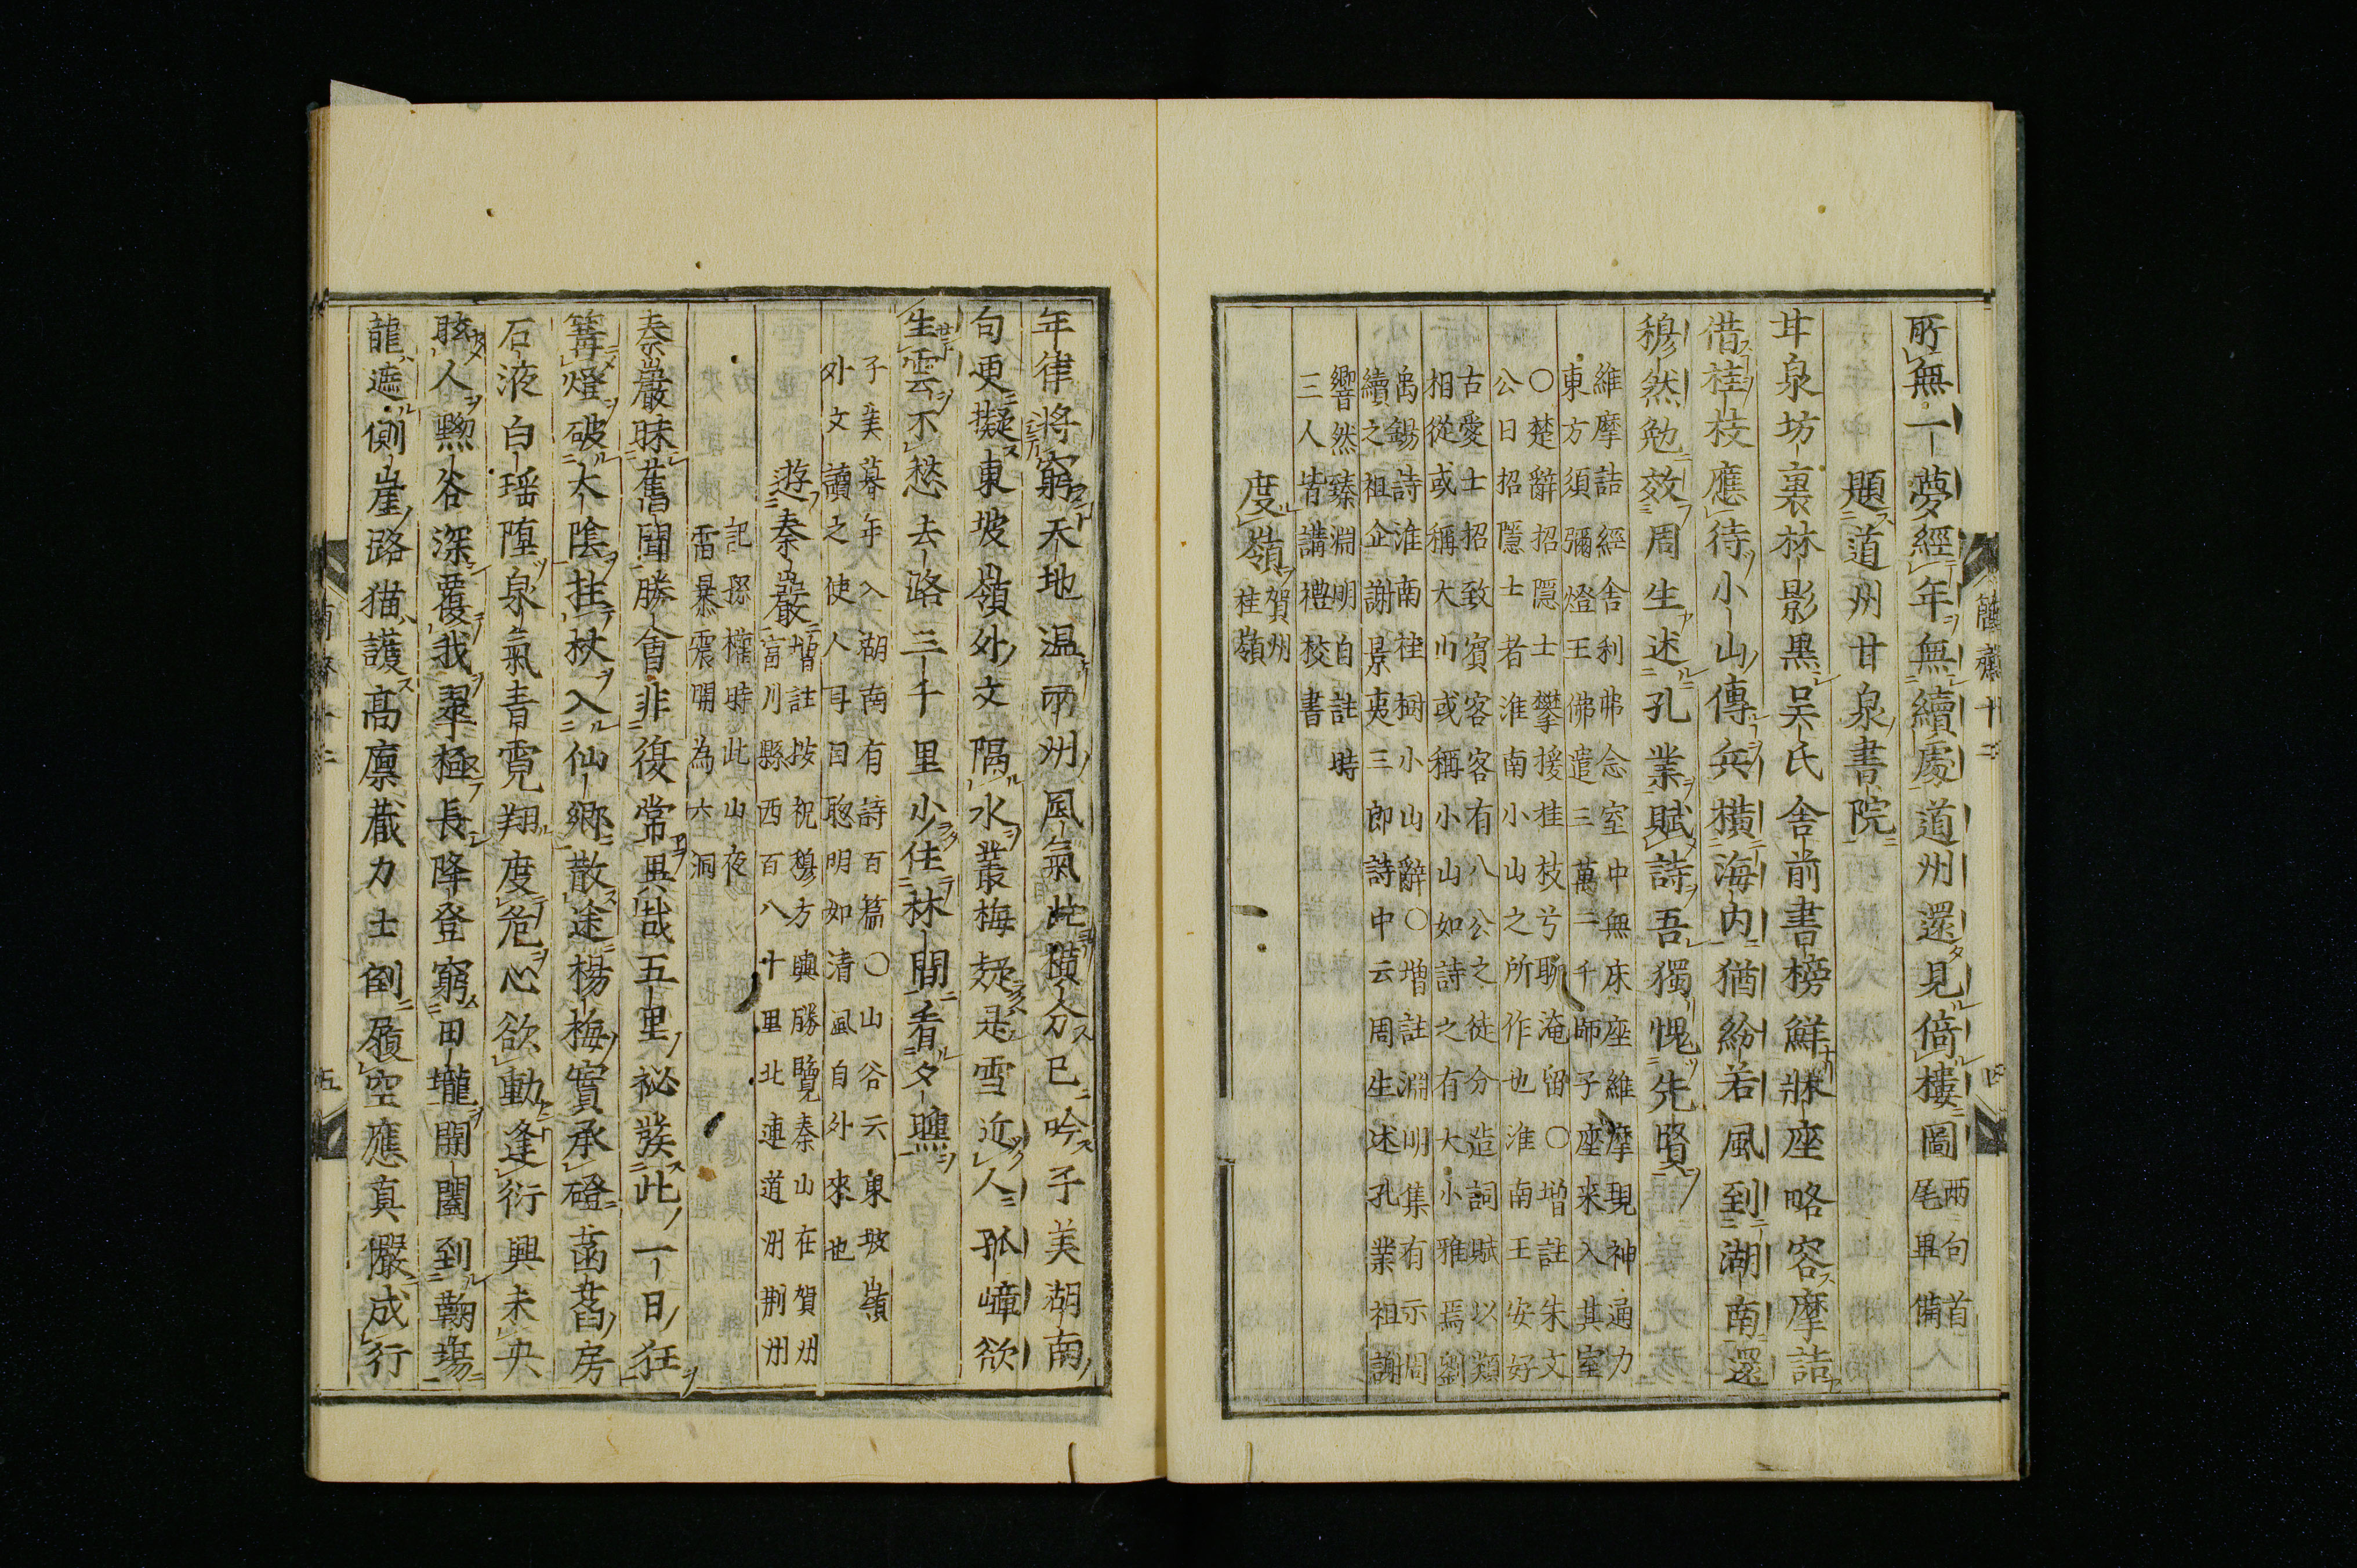 所無一夢經年無續處道州還見倚樓圖兩句首尾畢備
題道州甘泉書院
甘泉坊裏林影黒吳氏舍前書榜鮮牀座略容摩詰
借桂枝應待小山傳兵横海内猶紛若風到湖南還
穆然勉效周生述孔業賦詩吾獨愧先賢
維摩詰經舍利弗念室中無床座維摩現神通力
東方須彌燈王佛遣三萬二千師子座来入其室
〇楚辭招隱士攀援桂枝兮聊淹留〇増註朱文
公曰招隱士者淮南小山之所作也淮南王安好
古愛士招致賓客客有八公之徒分造詞賦以類
相從或稱大山或稱小山如詩之有大小雅焉劉
禹錫詩淮南桂樹小山辭〇増註淵明集有示周
續之祖企謝景夷三郎詩中云周生述孔業祖謝
響然臻淵明自註時
三人皆講禮校書
度嶺賀州桂嶺
簡齋十二
四
年律將窮天地温兩州風氣此横分已吟子美湖南
句更擬東坡嶺外文隔水叢梅疑是雪近人孤嶂欲
生雲不愁去路三千里少住林間看夕曛
子美暮年入湖南有詩百篇〇山谷云東坡嶺
外文讀之使人耳目聰明如清風自外來也
遊秦巖増註按祝穆方輿勝覽秦山在賀州富川縣西百八十里北連道州荆州
記孫權時此山夜雷暴震開為六洞
秦巖昧舊聞勝會非復常異哉五里秘發此一日狂
篝燈破大陰挂杖入仙鄉散途楊梅實承磴菡萏房
石液白瑶墮泉氣青霓翔度危心欲動逢衍興未央
駭人黝谷深覆我翠極長降登窮田壠開闔到鞠場
龍遮側崖路猫護高廩藏力士倒履空應真儼成行
簡齋十二
五